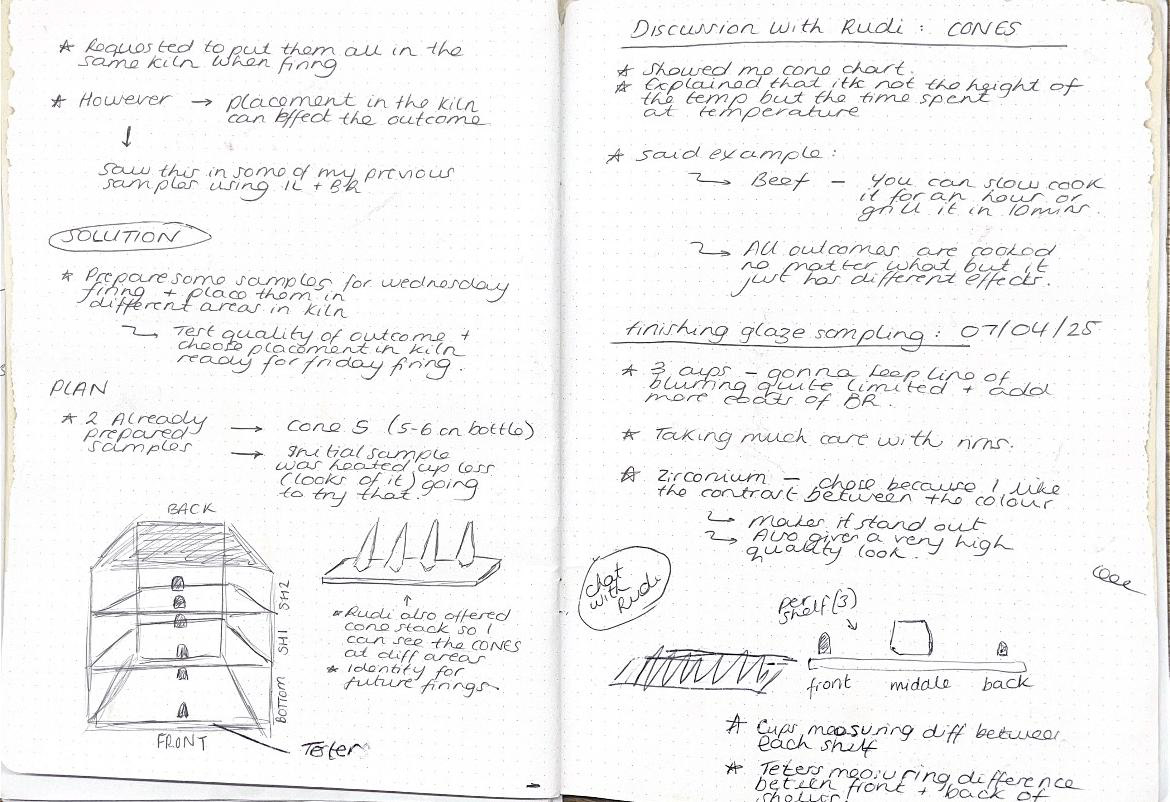 * Requested to put them all in the
same kiln when firing
* However → placement in the kiln
can effect the outcome
↓
saw this in some of my previous
samples using IL + BR
SOLUTION
* Prepare some samples for wednesday
firing + place them in
different areas in kiln
Test quality of outcome +
choose placement in kiln
ready for friday firing.
PLAN
* 2 Already
prepared
samples
→ cone 5 (5-6 on bottle)
→ Initial sample
was heated up less
(looks of it) going
to try that.
BACK
SH2
SH1
BOTTOM
FRONT
Tester
* Rudi also offered
cone stack so I
can see the CONES
at diff areas
* identity for
future firings
Discussion with Rudi : CONES
* showed me cone chart.
* Explained that its not the height of
the temp but the time spent
at temperature
* said example :
Beef – You can slow cook
it for an hour or
grill it in 10mins.
All outcomes are cooked
no matter what but it
just has different effects.
finishing glaze sampling : 07/04/25
* 3 cups – gonna keep line of
blurring quite limited + add
more coats of BR.
* Taking much care with rims.
* zirconium – chose because I like
the contrast between the colour
makes it stand out
Also gives a very high
quality look.
chat
with
Rudi
per
shelf (3)
front middle back
* Cups measuring diff between
each shelf
* Teters measuring difference
betien front + back of
shelves.